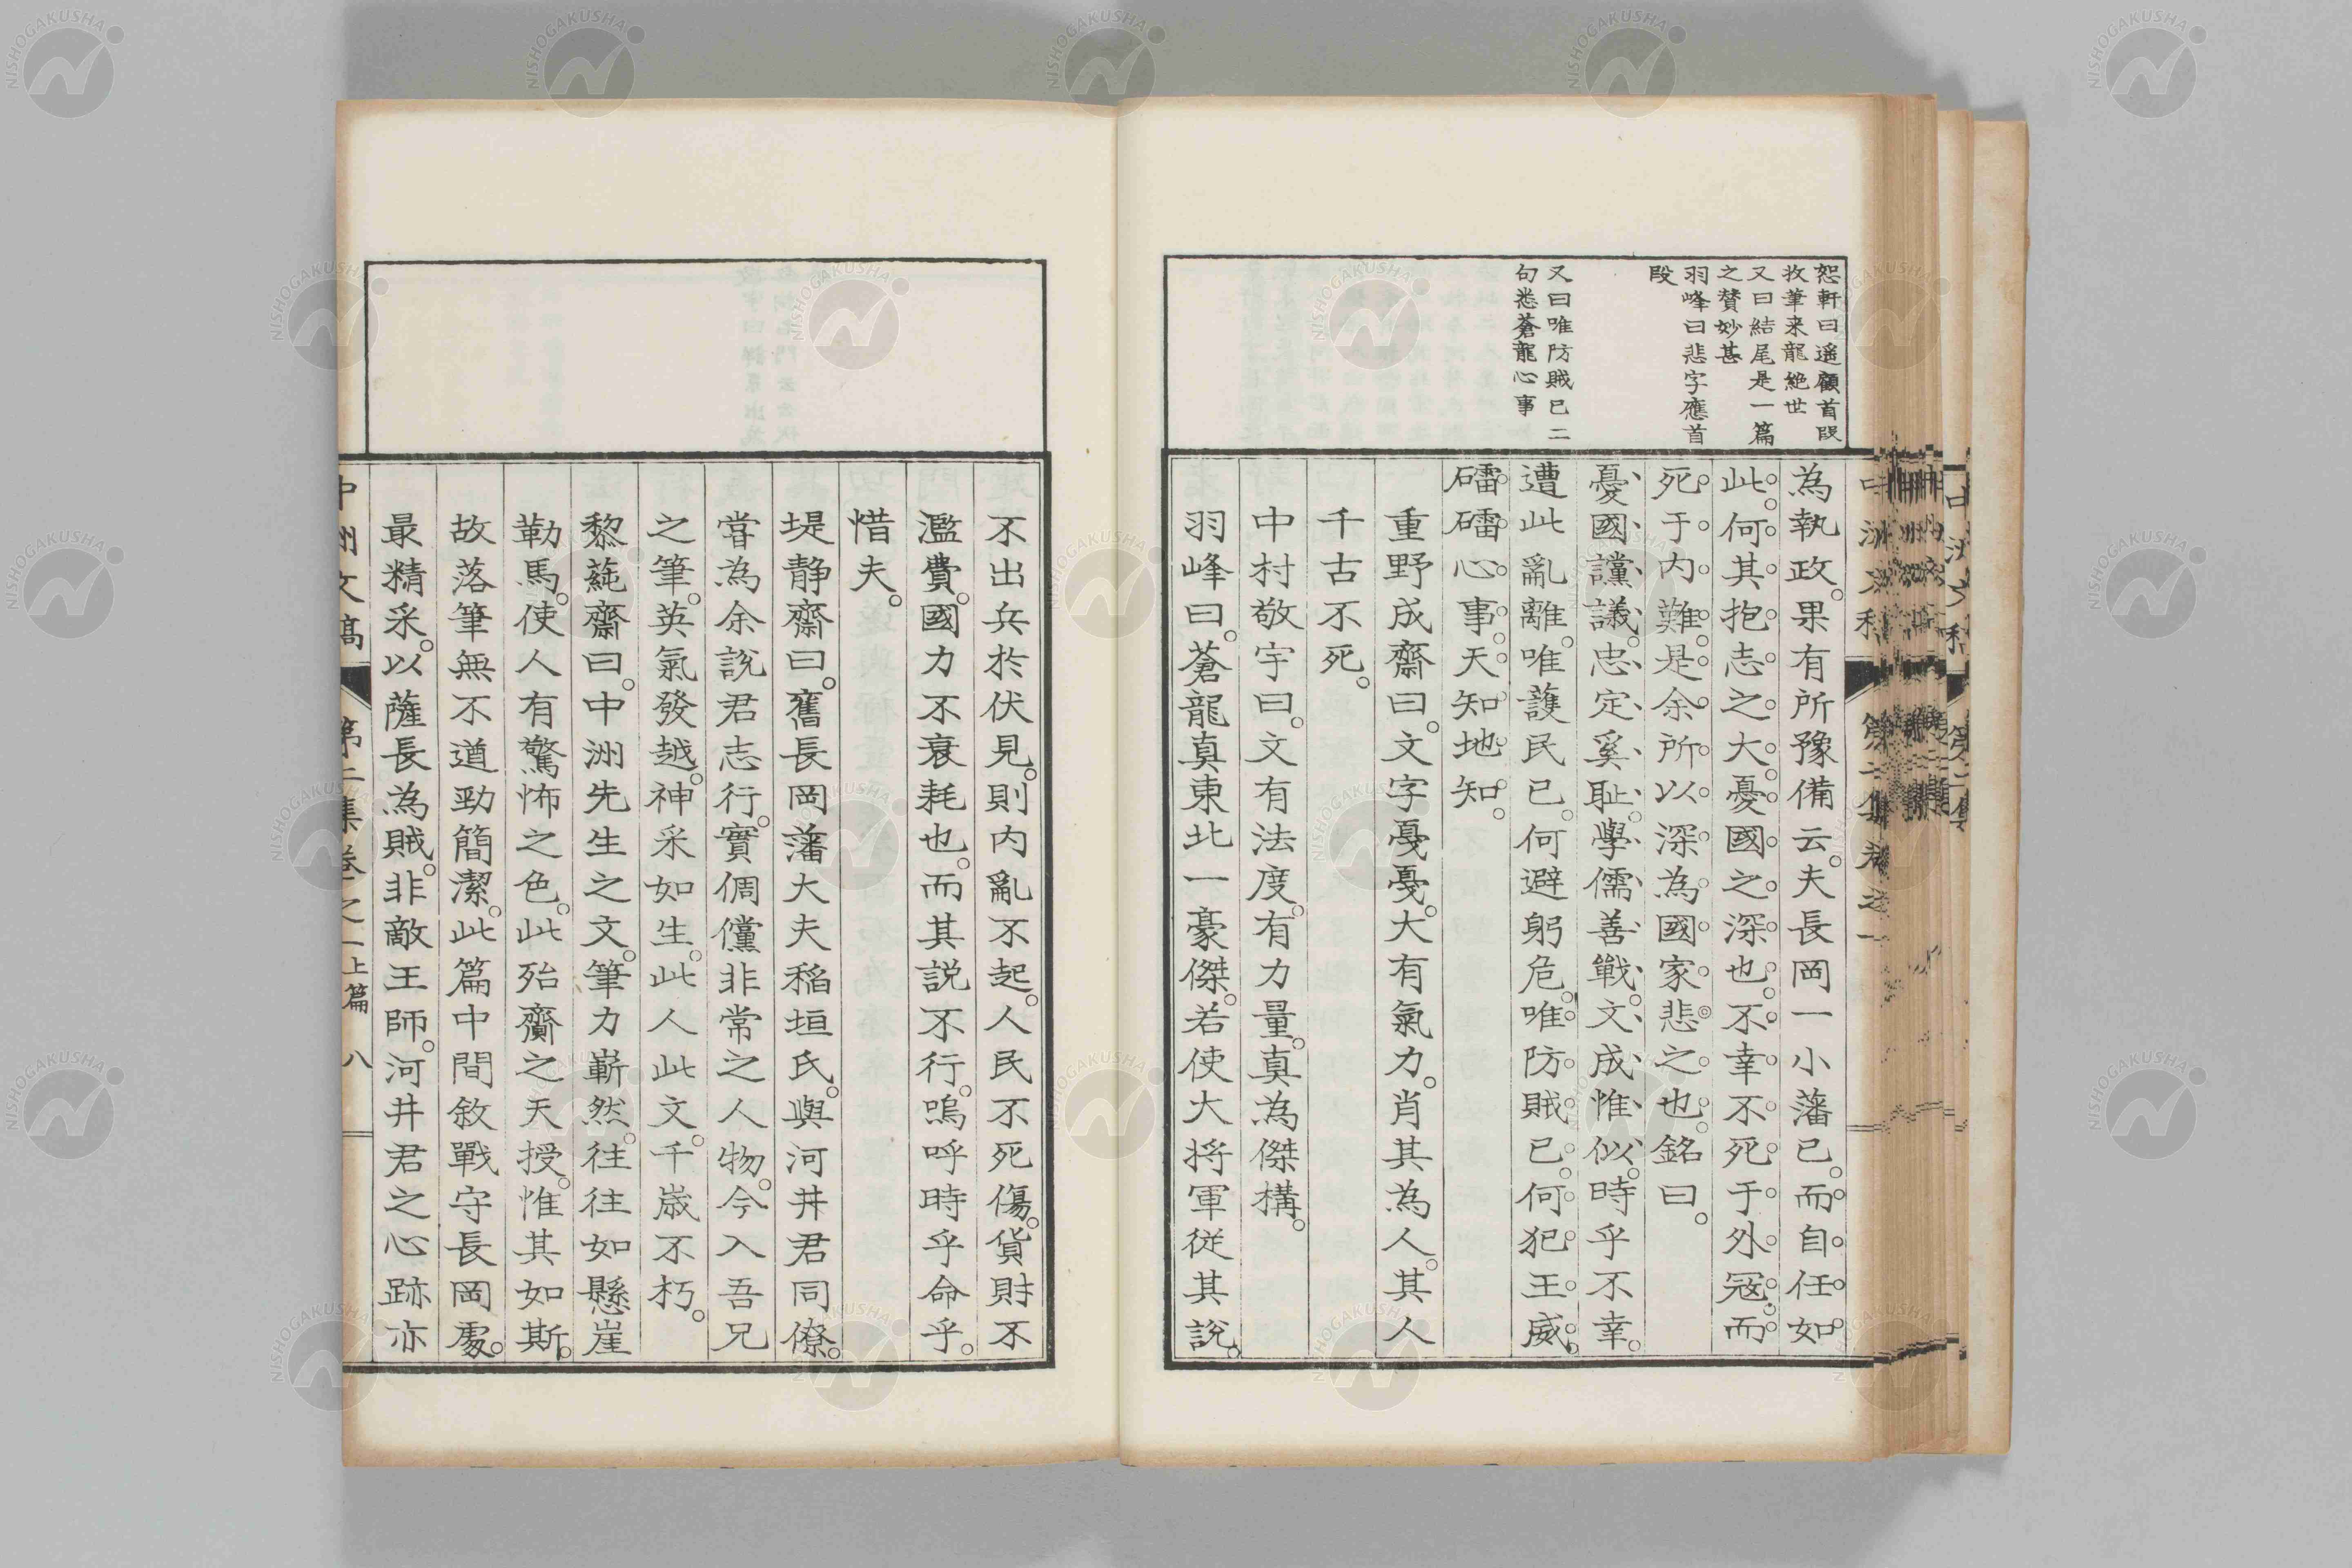 恕軒曰遥顧首段
收筆来龍絶世
又曰結尾是一篇
之賛妙甚
羽峰曰悲字應首
段
又曰唯防賊已二
句悉蒼龍心事
為執政。果有所豫備云。夫長岡一小藩已。而自任如
此。何其抱志之大。憂國之深也。不幸不死于外冦。而
死于内難。是余所以深為國家悲之也。銘曰。
憂國讜議。忠定奚耻。學儒善戰。文成惟似。時乎不幸。
遭此亂離。唯護民已。何避躬危。唯防賊已。何犯王威。
礌礌心事。天知地知。
重野成齋曰。文字戞戞。大有氣力。肖其為人。其人
千古不死。
中村敬宇曰。文有法度。有力量。真為傑構。
羽峰曰。蒼龍真東北一豪傑。若使大将軍従其説。
不出兵於伏見。則内亂不起。人民不死傷。貨財不
濫費。國力不衰耗也。而其説不行。嗚呼時乎命乎。
惜夫。
堤静齋曰。舊長岡藩大夫稲垣氏。與河井君同僚。
嘗為余説君志行。實倜儻非常之人物。今入吾兄
之筆。英氣發越。神采如生。此人此文。千歳不朽。
黎蒓齋曰。中洲先生之文。筆力嶄然。往往如懸崖
勒馬。使人有驚怖之色。此殆齎之天授。惟其如斯。
故落筆無不遒勁簡潔。此篇中間敘戰守長岡處。
最精采。以薩長為賊。非敵王師。河井君之心跡亦
中洲文稿 第二集卷之一上篇 八